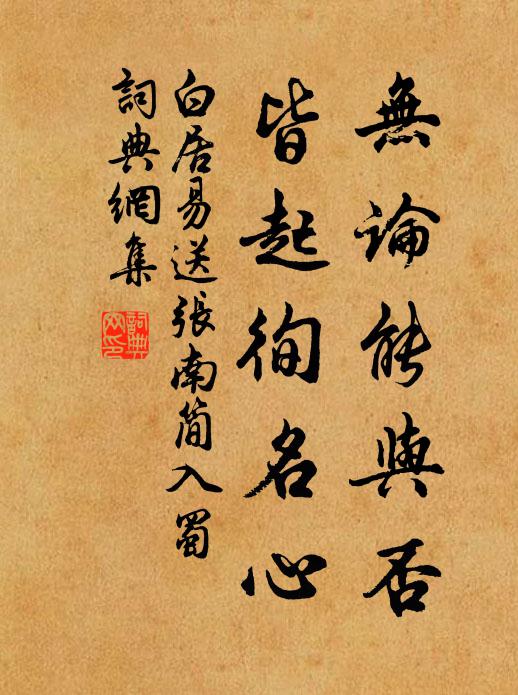 無論能與否
皆起徇名心
白居易送張南簡入蜀
詞典網集
詞典
網印